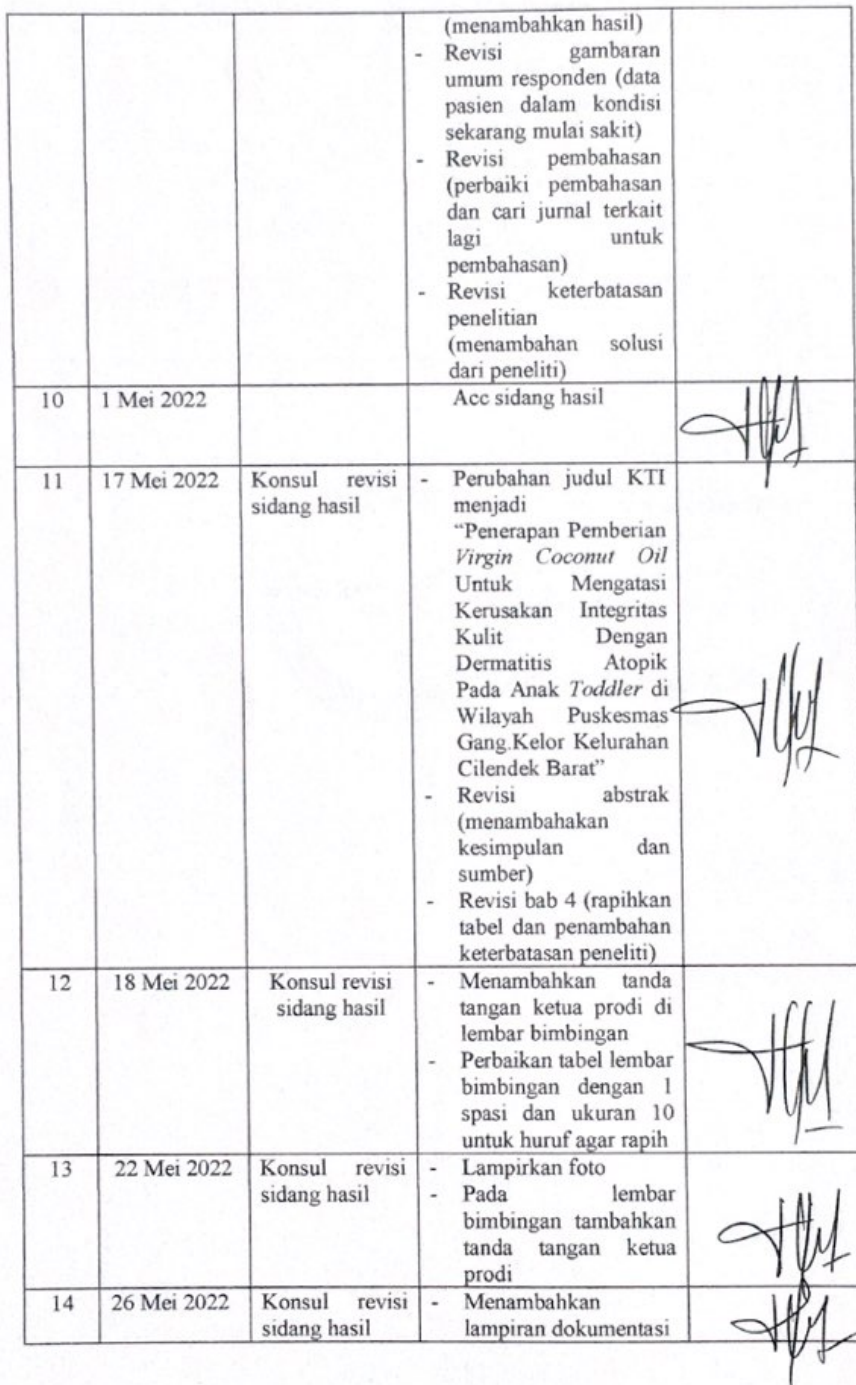 (menambahkan hasil)
- Revisi gambaran
umum responden (data
pasien dalam kondisi
sekarang mulai sakit)
- Revisi pembahasan
(perbaiki pembahasan
dan cari jurnal terkait
lagi untuk
pembahasan)
- Revisi keterbatasan
penelitian
(menambahan solusi
dari peneliti)
10 1 Mei 2022 Acc sidang hasil
11 17 Mei 2022 Konsul revisi
sidang hasil
- Perubahan judul KTI
menjadi
“Penerapan Pemberian
Virgin Coconut Oil
Untuk Mengatasi
Kerusakan Integritas
Kulit Dengan
Dermatitis Atopik
Pada Anak Toddler di
Wilayah Puskesmas
Gang.Kelor Kelurahan
Cilendek Barat”
- Revisi abstrak
(menambahakan
kesimpulan dan
sumber)
- Revisi bab 4 (rapihkan
tabel dan penambahan
keterbatasan peneliti)
12 18 Mei 2022 Konsul revisi
sidang hasil
- Menambahkan tanda
tangan ketua prodi di
lembar bimbingan
- Perbaikan tabel lembar
bimbingan dengan 1
spasi dan ukuran 10
untuk huruf agar rapih
13 22 Mei 2022 Konsul revisi
sidang hasil
- Lampirkan foto
- Pada lembar
bimbingan tambahkan
tanda tangan ketua
prodi
14 26 Mei 2022 Konsul revisi
sidang hasil
- Menambahkan
lampiran dokumentasi